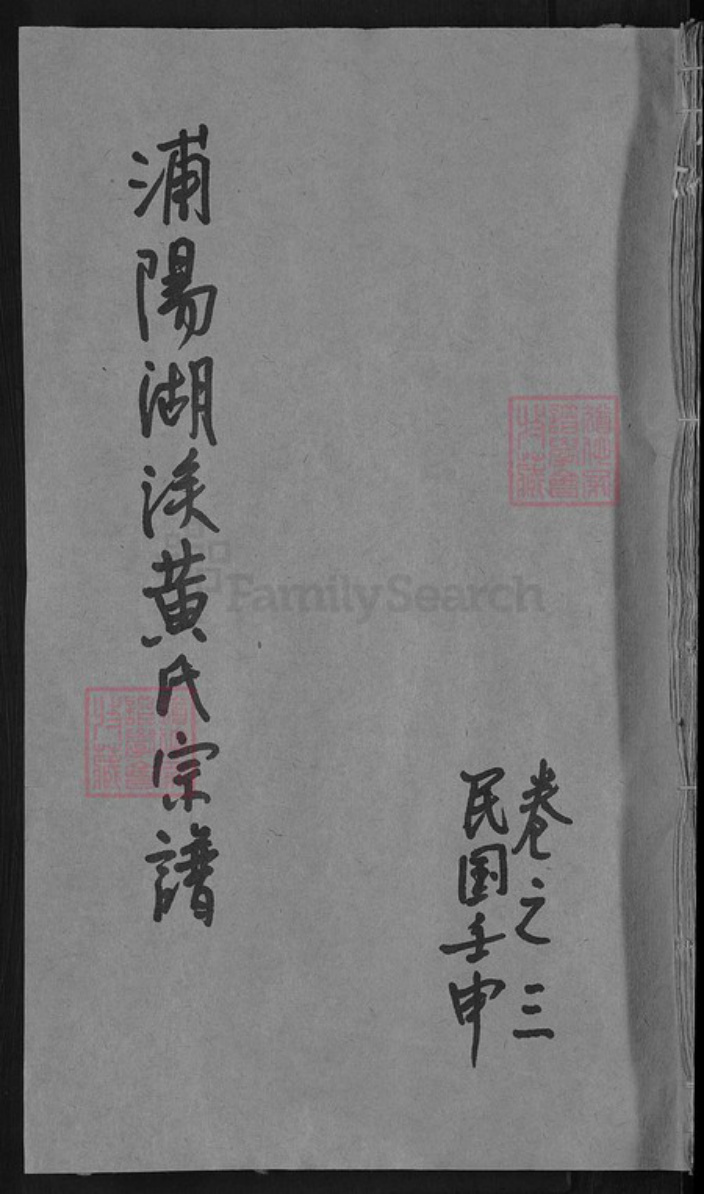 卷之三
民国壬申
浦陽湖涘黃氏宗譜
FamilySearch